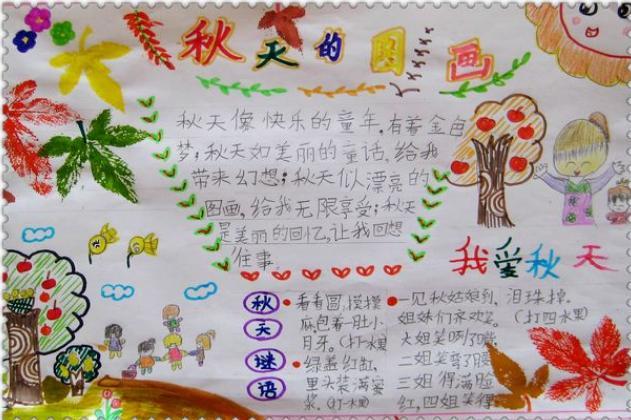 秋天的图画
秋天像快乐的童年,有着金色
梦;秋天如美丽的童话,给我
带来幻想;秋天似漂亮的
图画,给我无限享受;秋天
是美丽的回忆,让我回想
往事。
我爱秋天
秋天谜语
看看圆,摸摸
麻包着一肚小
月牙。(打一水果)
绿盖红缸,
里头装满蜜
浆。(打一水果)
一见秋姑娘到,泪珠掉。
姐妹们齐欢笑。(打四水果)
大姐笑咧了嘴
二姐笑弯了腰
三姐得满脸
红,四姐笑得